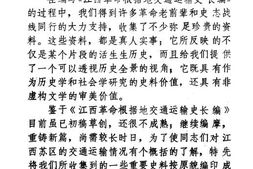 在编写《江西革命根据地交通运输史长编》
的过程中，我们得到许多革命老前辈和史志战
线同行的大力支持，收集了不少弥足珍贵的资
料。这些资料，都是真人实事；它所反映的不
仅是某个片段的活生生历史，而且给我们提供
了一个可以透视历史全景的视角；它既具有作
为历史学和社会学研究的史料价值，还具有非
虚构文学的审美价值。
鉴于《江西革命根据地交通运输史长编》
目前虽已初稿草创，还很不成熟；继续编摩，
重铸新篇，尚需较长时日，为了使同志们对江
西苏区的交通运输情况有个概括的了解，特先
将我们所收集到的一些重要史料按原貌编印成